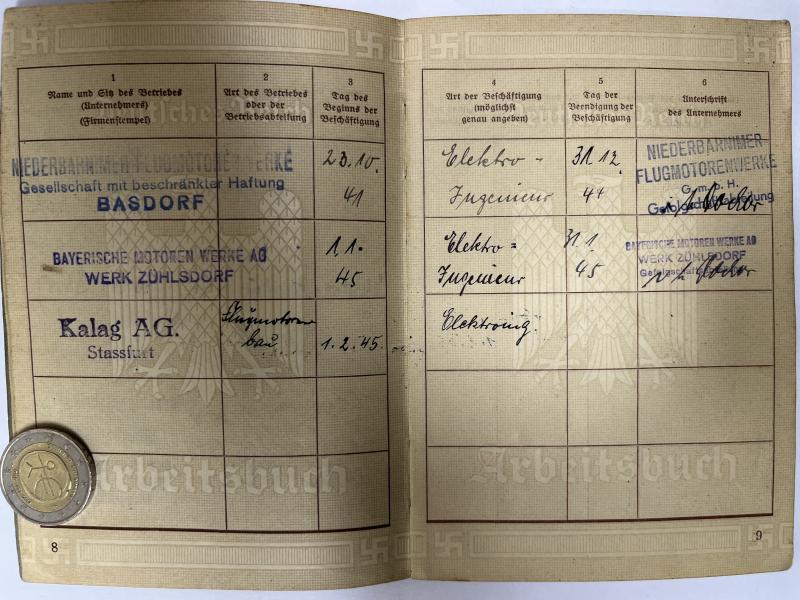 1
Name und Sitz des Betriebes
(Unternehmers)
(Firmenstempel)
2
Art des Betriebes
oder der
Betriebsabteilung
3
Tag des
Beginns der
Beschäftigung
NIEDERBARNIMER FLUGMOTORENWERKE
Gesellschaft mit beschränkter Haftung
BASDORF
23.10.
41
BAYERISCHE MOTOREN WERKE AG
WERK ZÜHLSDORF
1.1.
45
Kalag AG.
Stassfurt
Flugmotoren
bau
1.2.45.
Arbeitsbuch
8
4
Art der Beschäftigung
(möglichst
genau angeben)
5
Tag der
Beendigung der
Beschäftigung
6
Unterschrift
des Unternehmers
Elektro-
Ingenieur
31.12.
44
NIEDERBARNIMER
FLUGMOTORENWERKE
G.m.b.H.
Gefolgschaftsabteilung
Elektro=
Ingenieur
31.1.
45
BAYERISCHE MOTOREN WERKE AG
WERK ZÜHLSDORF
Elektroing.
Arbeitsbuch
9